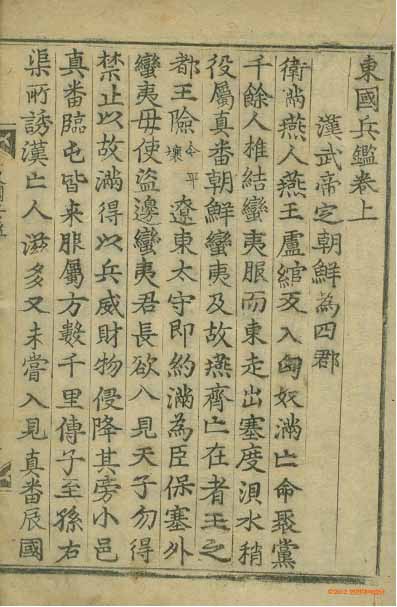 東國兵鑑卷上
漢武帝定朝鮮為四郡
衛滿燕人燕王盧綰反入匈奴滿亡命聚黨
千餘人椎結蠻夷服而東走出塞度浿水稍
役屬真番朝鮮蠻夷及故燕齊亡在者王之
都王險今平壤遼東太守即約滿為臣保塞外
蠻夷毋使盜邊蠻夷君長欲入見天子勿得
禁止以故滿得以兵威財物侵降其旁小邑
真番臨屯皆来服屬方數千里傳子至孫右
渠所誘漢亡人滋多又未嘗入見真番辰國